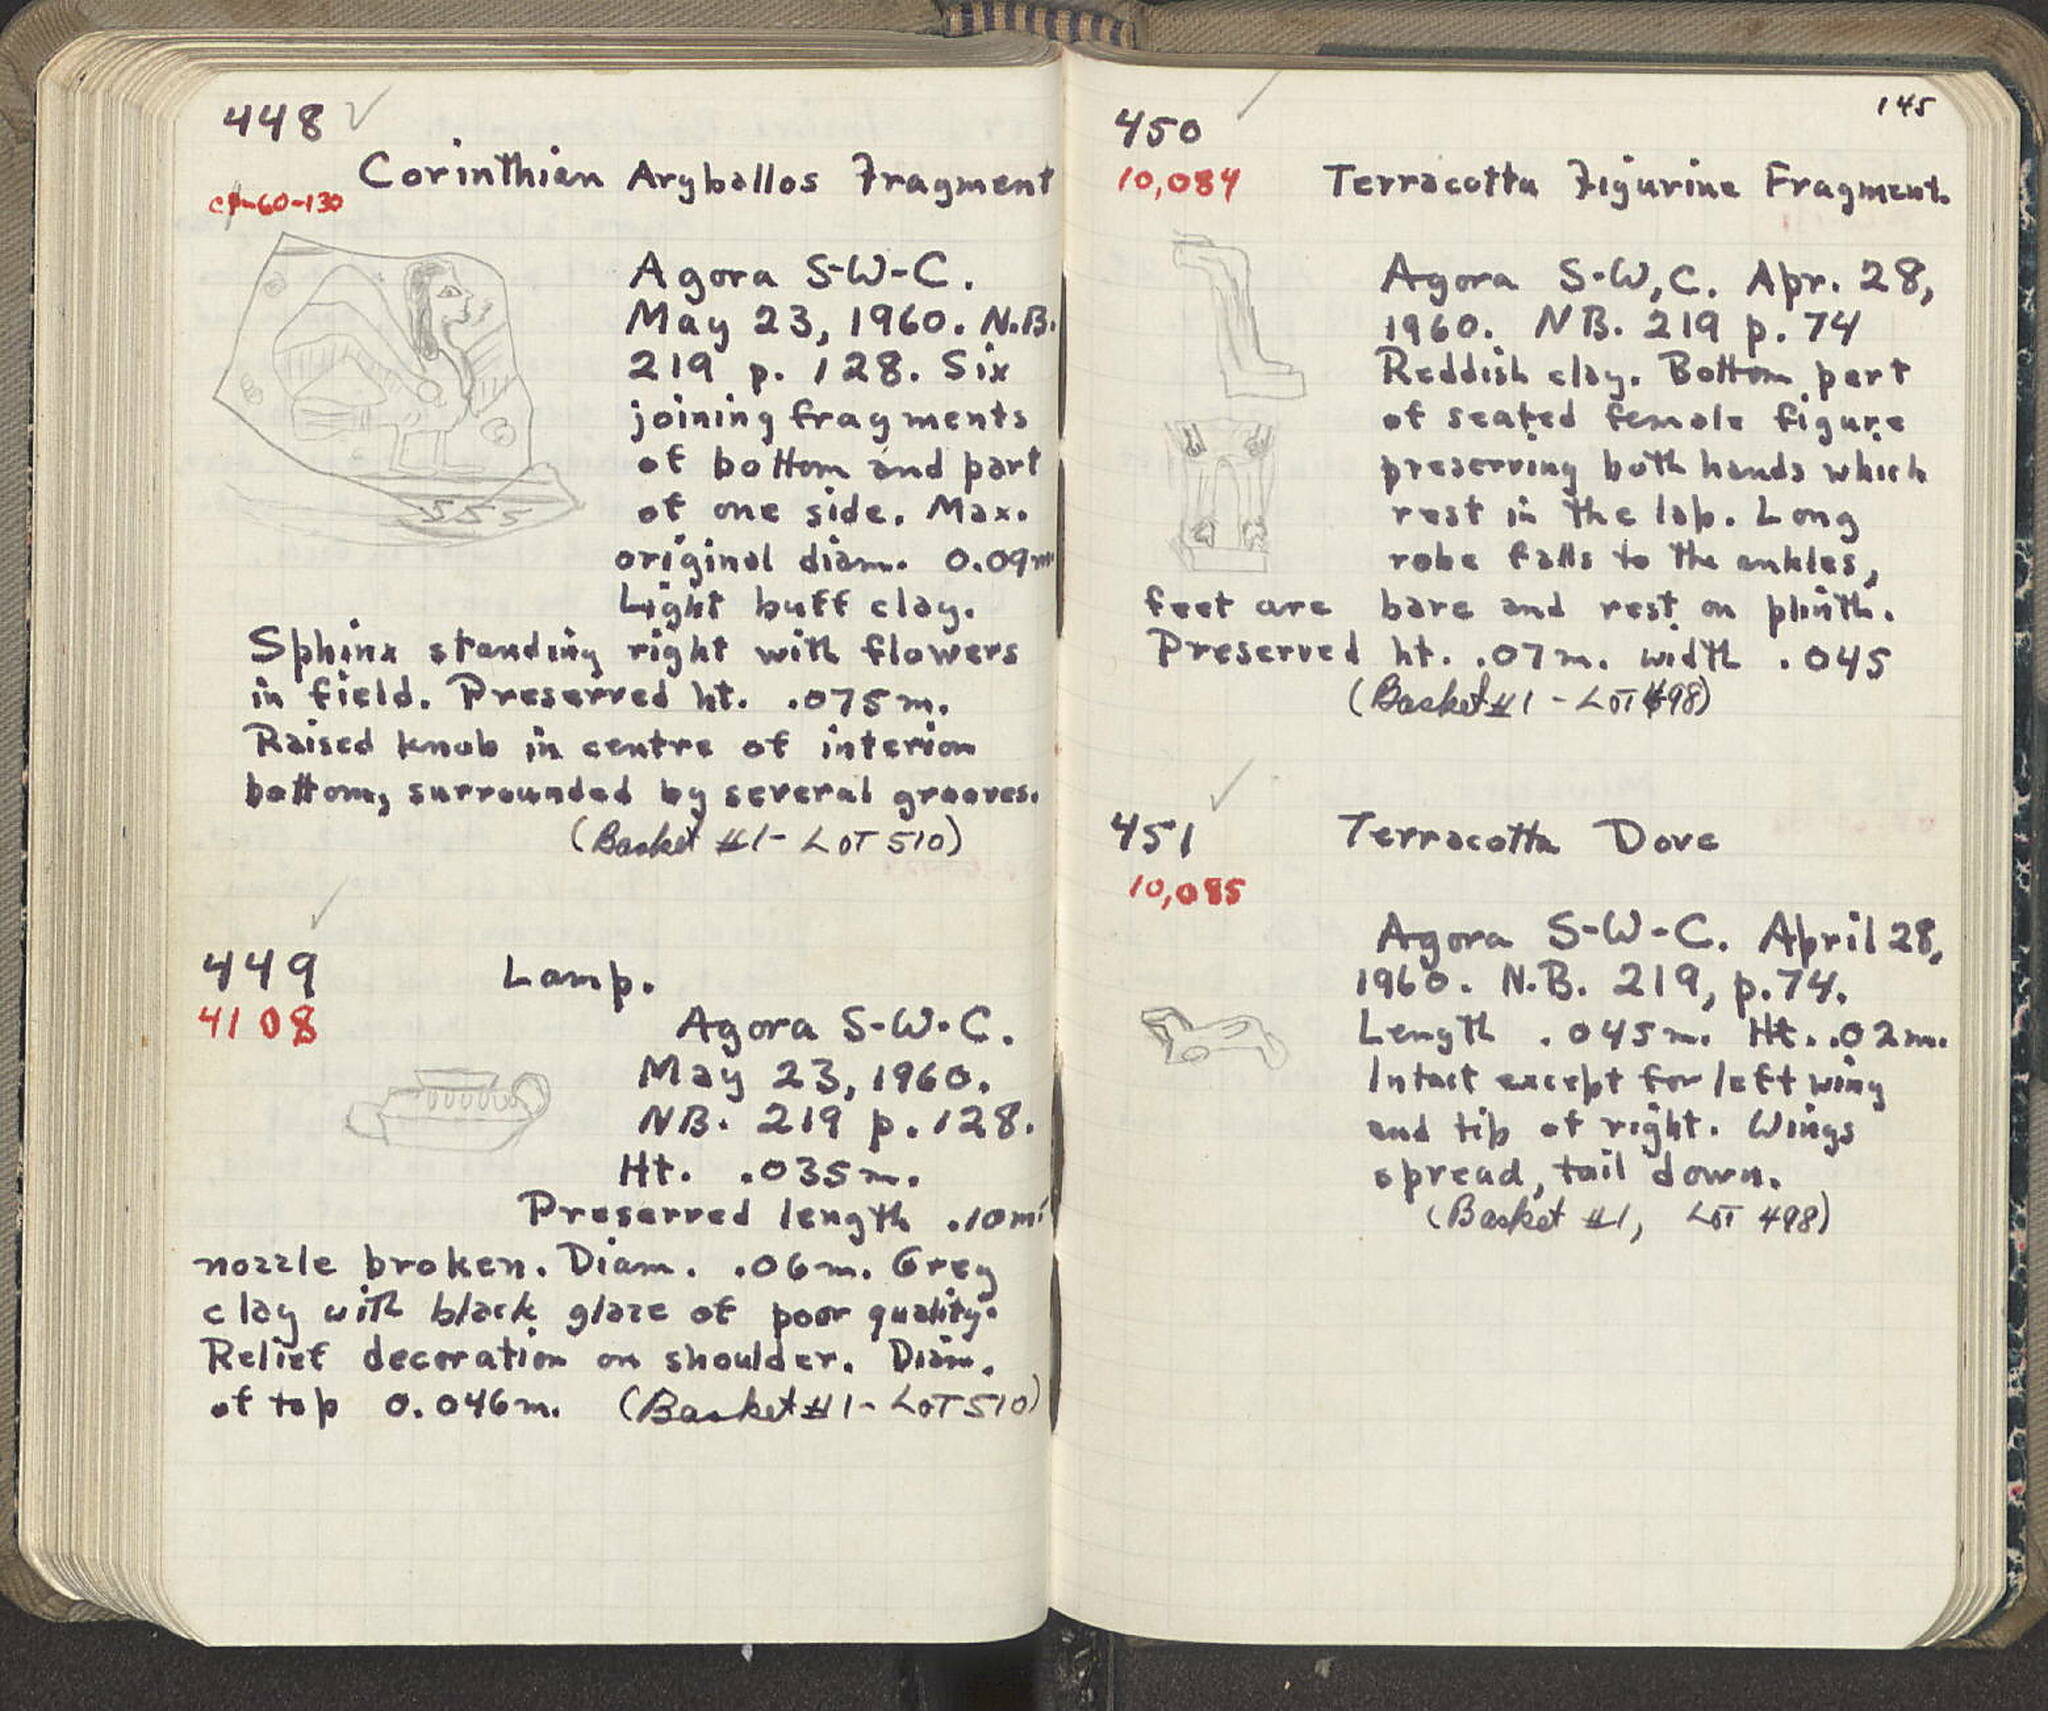 448
Corinthian Aryballos Fragment
CP-60-130
Agora S-W-C.
May 23, 1960. N.B.
219 p. 128. Six
joining fragments
of bottom and part
of one side. Max.
original diam. 0.09m
Light buff clay.
Sphinx standing right with flowers
in field. Preserved ht. .075m.
Raised knob in centre of interior
bottom, surrounded by several grooves.
(Basket #1- LOT 510)
449
Lamp.
4108
Agora S-W-C.
May 23, 1960.
NB. 219 p. 128.
Ht. .035m.
Preserved length .10m;
nozzle broken. Diam. .06m. Grey
clay with black glaze of poor quality.
Relief decoration on shoulder. Diam.
of top 0.046m. (Basket #1- LOT 510)
145
450
10,084 Terracotta Figurine Fragment.
Agora S-W,C. Apr. 28,
1960. NB. 219 p. 74
Reddish clay. Bottom part
of seated female figure
preserving both hands which
rest in the lap. Long
robe falls to the ankles,
feet are bare and rest on plinth.
Preserved ht. .07m. width .045
(Basket #1 - LOT 498)
451 Terracotta Dove
10,085
Agora S-W-C. April 28,
1960. N.B. 219, p.74.
Length .045m. Ht. .02m.
Intact except for left wing
and tip of right. Wings
spread, tail down.
(Basket #1, LOT 498)